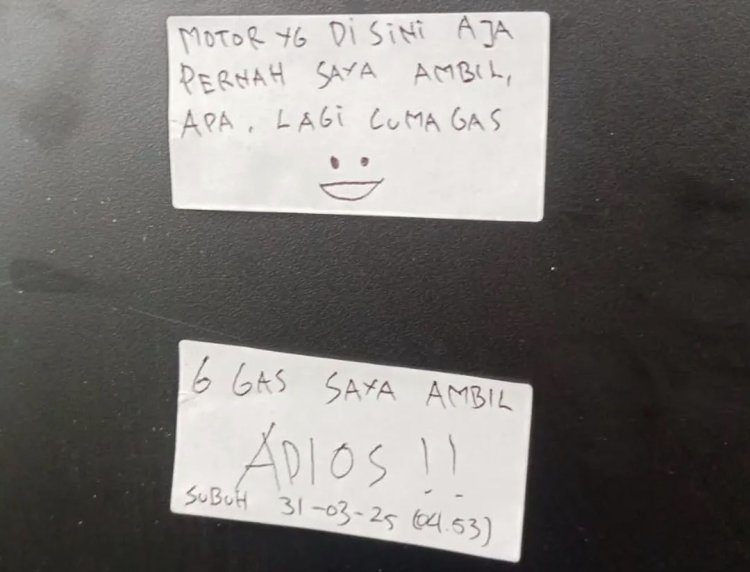 MOTOR YG DISINI AJA
PERNAH SAYA AMBIL,
APA. LAGI CUMA GAS
6 GAS SAYA AMBIL
ADIOS !!
SUBUH 31-03-25 (04.53)